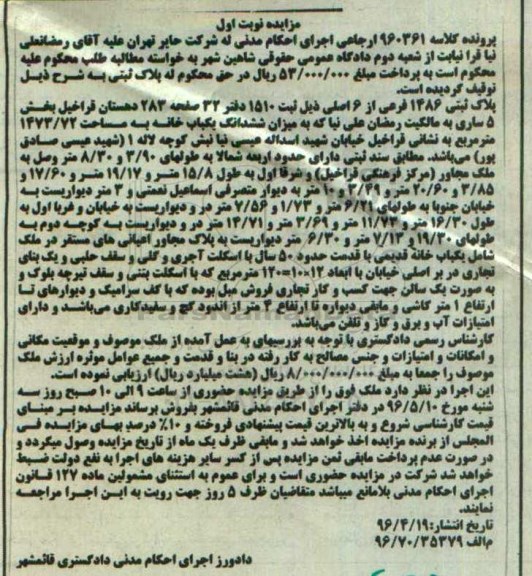 مزایده نوبت اول
پرونده کلاسه ۹۶۰۳۶۱ ارجاعی اجرای احکام مدنی له شرکت حایر تهران علیه آقای رمضانعلی
نیا قرا نیابت از شعبه دوم دادگاه عمومی حقوقی شاهین شهر به خواسته مطالبه طلب محکوم علیه
محکوم است به پرداخت مبلغ ۵۳/۰۰۰/۰۰۰ ریال در حق محکوم له پلاک ثبتی به شرح ذیل
توقیف گردیده است.
پلاک ثبتی ۱۴۸۶ فرعی از ۶ اصلی ذیل ثبت ۱۵۱۰ دفتر ۳۲ صفحه ۲۸۳ دهستان قراخیل بخش
۵ ساری به مالکیت رمضان علی نیا که به میزان ششدانگ یکباب خانه به مساحت ۱۴۷۳/۷۲
مترمربع به نشانی قراخیل خیابان شهید اسداله عیسی نیا نبش کوچه لاله ۱ (شهید عیسی صادق
پور) می‌باشد. مطابق سند ثبتی دارای حدود اربعه شمالا به طولهای ۳/۹۰ و ۸/۳۰ متر وصل به
ملک مجاور (مرکز فرهنگی قراخیل) و شرقا اول به طول ۱۵/۸ متر و ۱۹/۱۷ متر و ۱۷/۶۰ و
۳/۸۵ و ۲۰/۶۰ متر و ۳/۴۹ و ۱۰ متر به دیوار متصرفی اسماعیل نعمتی و ۳ متر دیواریست به
خیابان جنوبا به طولهای ۶/۲۱ متر و ۱/۷۳ و ۷/۵۶ متر در و دیواریست به خیابان و غربا اول به
طول ۱۶/۳۰ متر و ۱۱/۷۳ متر و ۳/۶۹ متر و ۱۴/۷۱ متر در و دیواریست به کوچه دوم به
طولهای ۱۹/۳۰ و ۷/۱۳ متر و ۶/۳۰ متر دیواریست به پلاک مجاور اعیانی های مستقر در ملک
شامل یکباب خانه قدیمی با قدمت حدود ۵۰ سال با اسکلت آجری و کلی و سقف حلبی و یک بنای
تجاری در بر اصلی خیابان با ابعاد ۱۲×۱۰=۱۲۰ مترمربع که با اسکلت بتنی و سقف تیرچه بلوک و
به صورت یک سالن جهت کسب و کار تجاری فروش مبل بوده که با کف سرامیک و دیوارهای تا
ارتفاع ۱ متر کاشی و مابقی دیواره تا ارتفاع ۴ متر از اندود گچ و سفیدکاری می‌باشد و دارای
امتیازات آب و برق و گاز و تلفن می‌باشد.
کارشناس رسمی دادگستری با توجه به بررسیهای به عمل آمده از ملک موصوف و موقعیت مکانی
و امکانات و امتیازات و جنس مصالح به کار رفته در بنا و قدمت و جمیع عوامل موثره ارزش ملک
موصوف را جمعا به مبلغ ۸/۰۰۰/۰۰۰/۰۰۰ ریال (هشت میلیارد ریال) ارزیابی نموده است.
این اجرا در نظر دارد ملک فوق را از طریق مزایده حضوری از ساعت ۹ الی ۱۰ صبح روز سه
شنبه مورخ ۹۶/۵/۱۰ در دفتر اجرای احکام مدنی قائمشهر بفروش برساند مزایده بر مبنای
قیمت کارشناسی شروع و به بالاترین قیمت پیشنهادی فروخته و ۱۰٪ درصد بهای مزایده فی
المجلس از برنده مزایده اخذ خواهد شد و مابقی ظرف یک ماه از تاریخ مزایده وصول میگردد و
در صورت عدم پرداخت مابقی ثمن مزایده پس از کسر سایر هزینه های اجرا به نفع دولت ضبط
خواهد شد شرکت در مزایده حضوری است و برای عموم به استثنای مشمولین ماده ۱۲۷ قانون
اجرای احکام مدنی بلامانع میباشد متقاضیان ظرف ۵ روز جهت رویت به این اجرا مراجعه
نمایند.
تاریخ انتشار: ۹۶/۴/۱۹
م‌الف ۹۶/۷۰/۳۵۳۷۹
دادورز اجرای احکام مدنی دادگستری قائمشهر